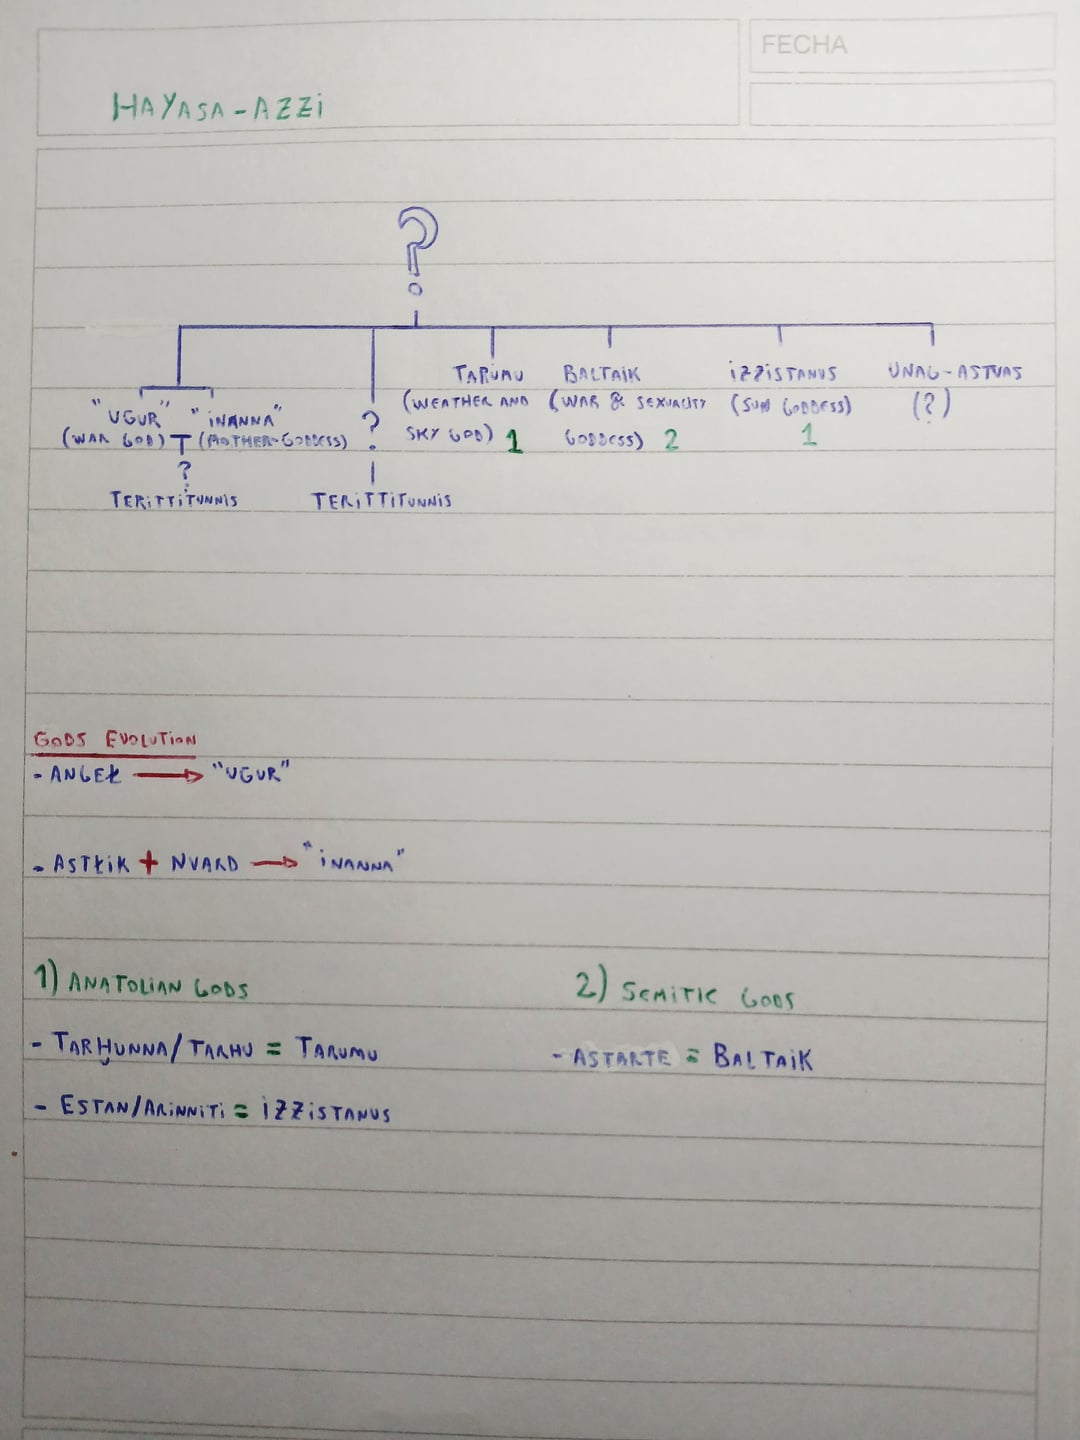 FECHA
HAYASA-AZZi
?
TARUMU BALTAiK iZZiSTANUS UNAG-ASTUAS
"UGUR" "iNANNA" ? (WEATHER AND (WAR & SEXUALITY (SUN GODDESS) (?)
(WAR GOD) (MOTHER-GODDESS) SKY GOD) 1 GODDESS) 2 1
?
TERiTTiTUNNiS TERiTTiTUNNiS
GODS EVOLUTION
- ANGEŁ → "UGUR"
- ASTŁiK + NVARD → "iNANNA"
1) ANATOLIAN GODS 2) SEMiTiC GODS
- TARḪUNNA/TARHU = TARUMU - ASTARTE = BALTAiK
- ESTAN/ARiNNiTi = iZZiSTANUS